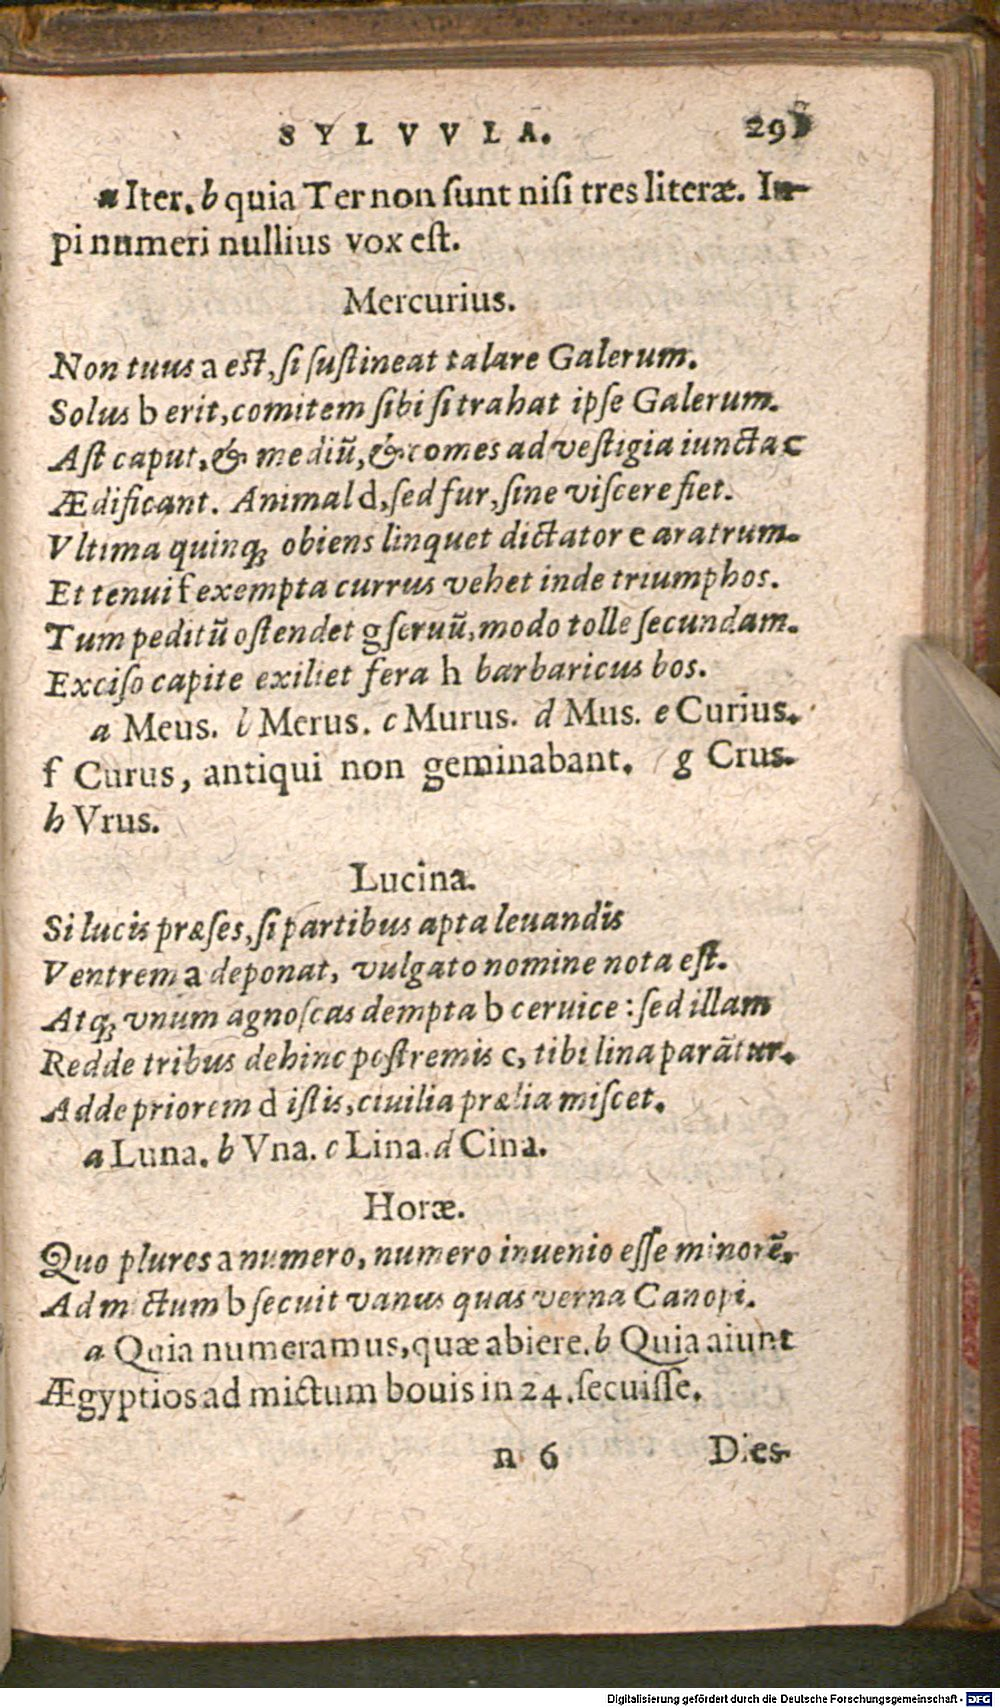 SYLVVLA. 29
a Iter. b quia Ter non sunt nisi tres literæ. In-
pi numeri nullius vox est.
Mercurius.
Non tuus a est, si sustineat talare Galerum.
Solus b erit, comitem sibi si trahat ipse Galerum.
Ast caput, & mediũ, & comes ad vestigia iuncta c
Ædificant. Animal d, sed fur, sine viscere fiet.
Vltima quinq; obiens linquet dictator e aratrum.
Et tenui f exempta currus vehet inde triumphos.
Tum peditũ ostendet g seruũ, modo tolle secundam.
Exciso capite exiliet fera h barbaricus bos.
a Meus. b Merus. c Murus. d Mus. e Curius.
f Curus, antiqui non geminabant. g Crus.
h Vrus.
Lucina.
Si lucis præses, si partibus apta leuandis
Ventrem a deponat, vulgato nomine nota est.
Atq; vnum agnoscas dempta b ceruice : sed illam
Redde tribus dehinc postremis c, tibi lina parãtur.
Adde priorem d istis, ciuilia prælia miscet.
a Luna. b Vna. c Lina. d Cina.
Horæ.
Quo plures a numero, numero inuenio esse minorẽ.
Ad mictum b secuit vanus quas verna Canopi.
a Quia numeramus, quæ abiere. b Quia aiunt
Ægyptios ad mictum bouis in 24. secuisse.
n 6 Dies
Digitalisierung gefördert durch die Deutsche Forschungsgemeinschaft - DFG